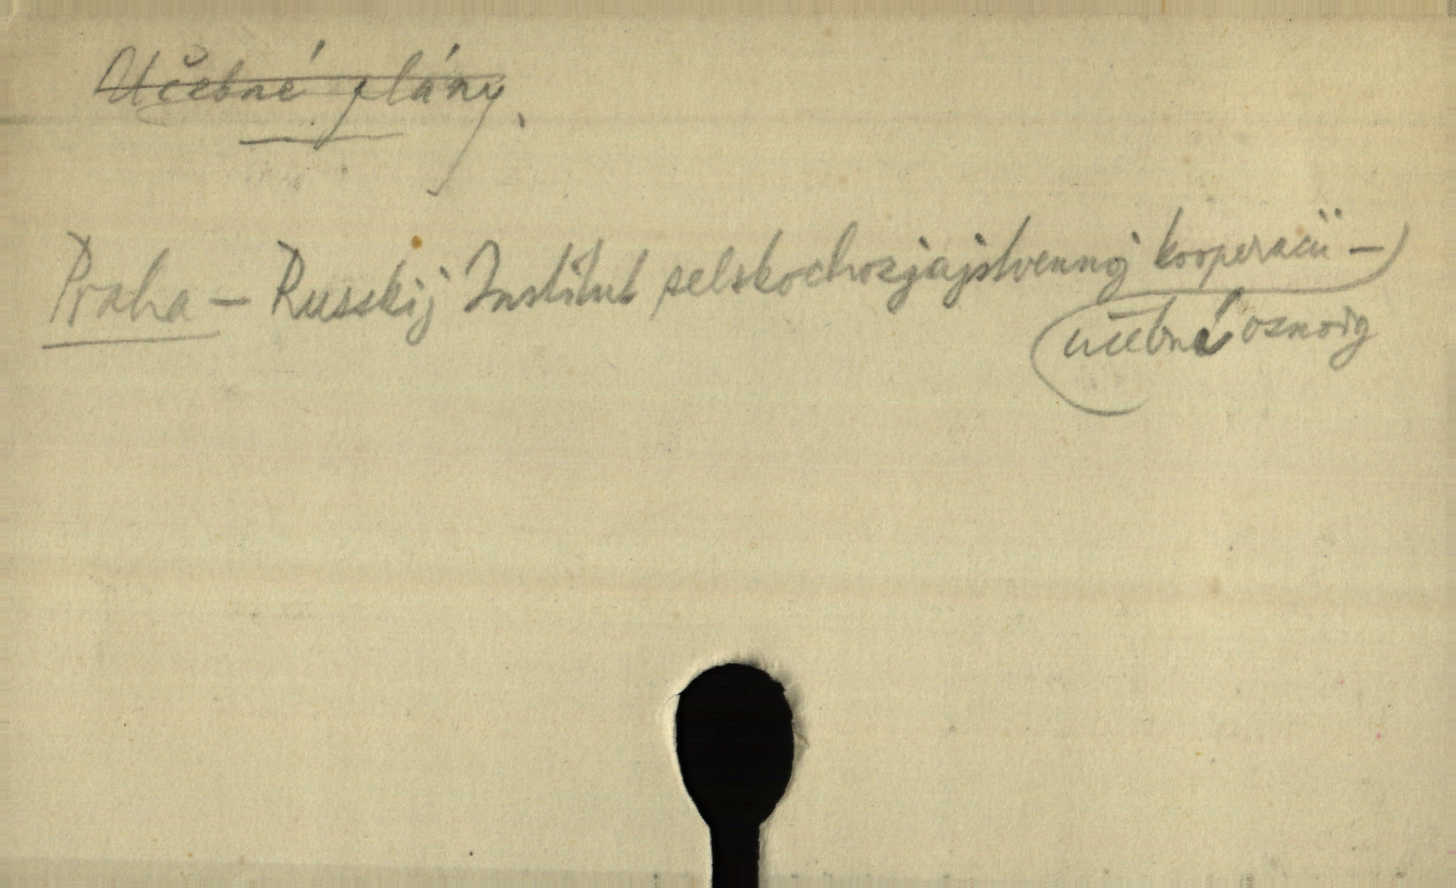 Učebné plány.
Praha - Russkij Institut selskochozjajstvennoj kooperacii -
učebné osnovy